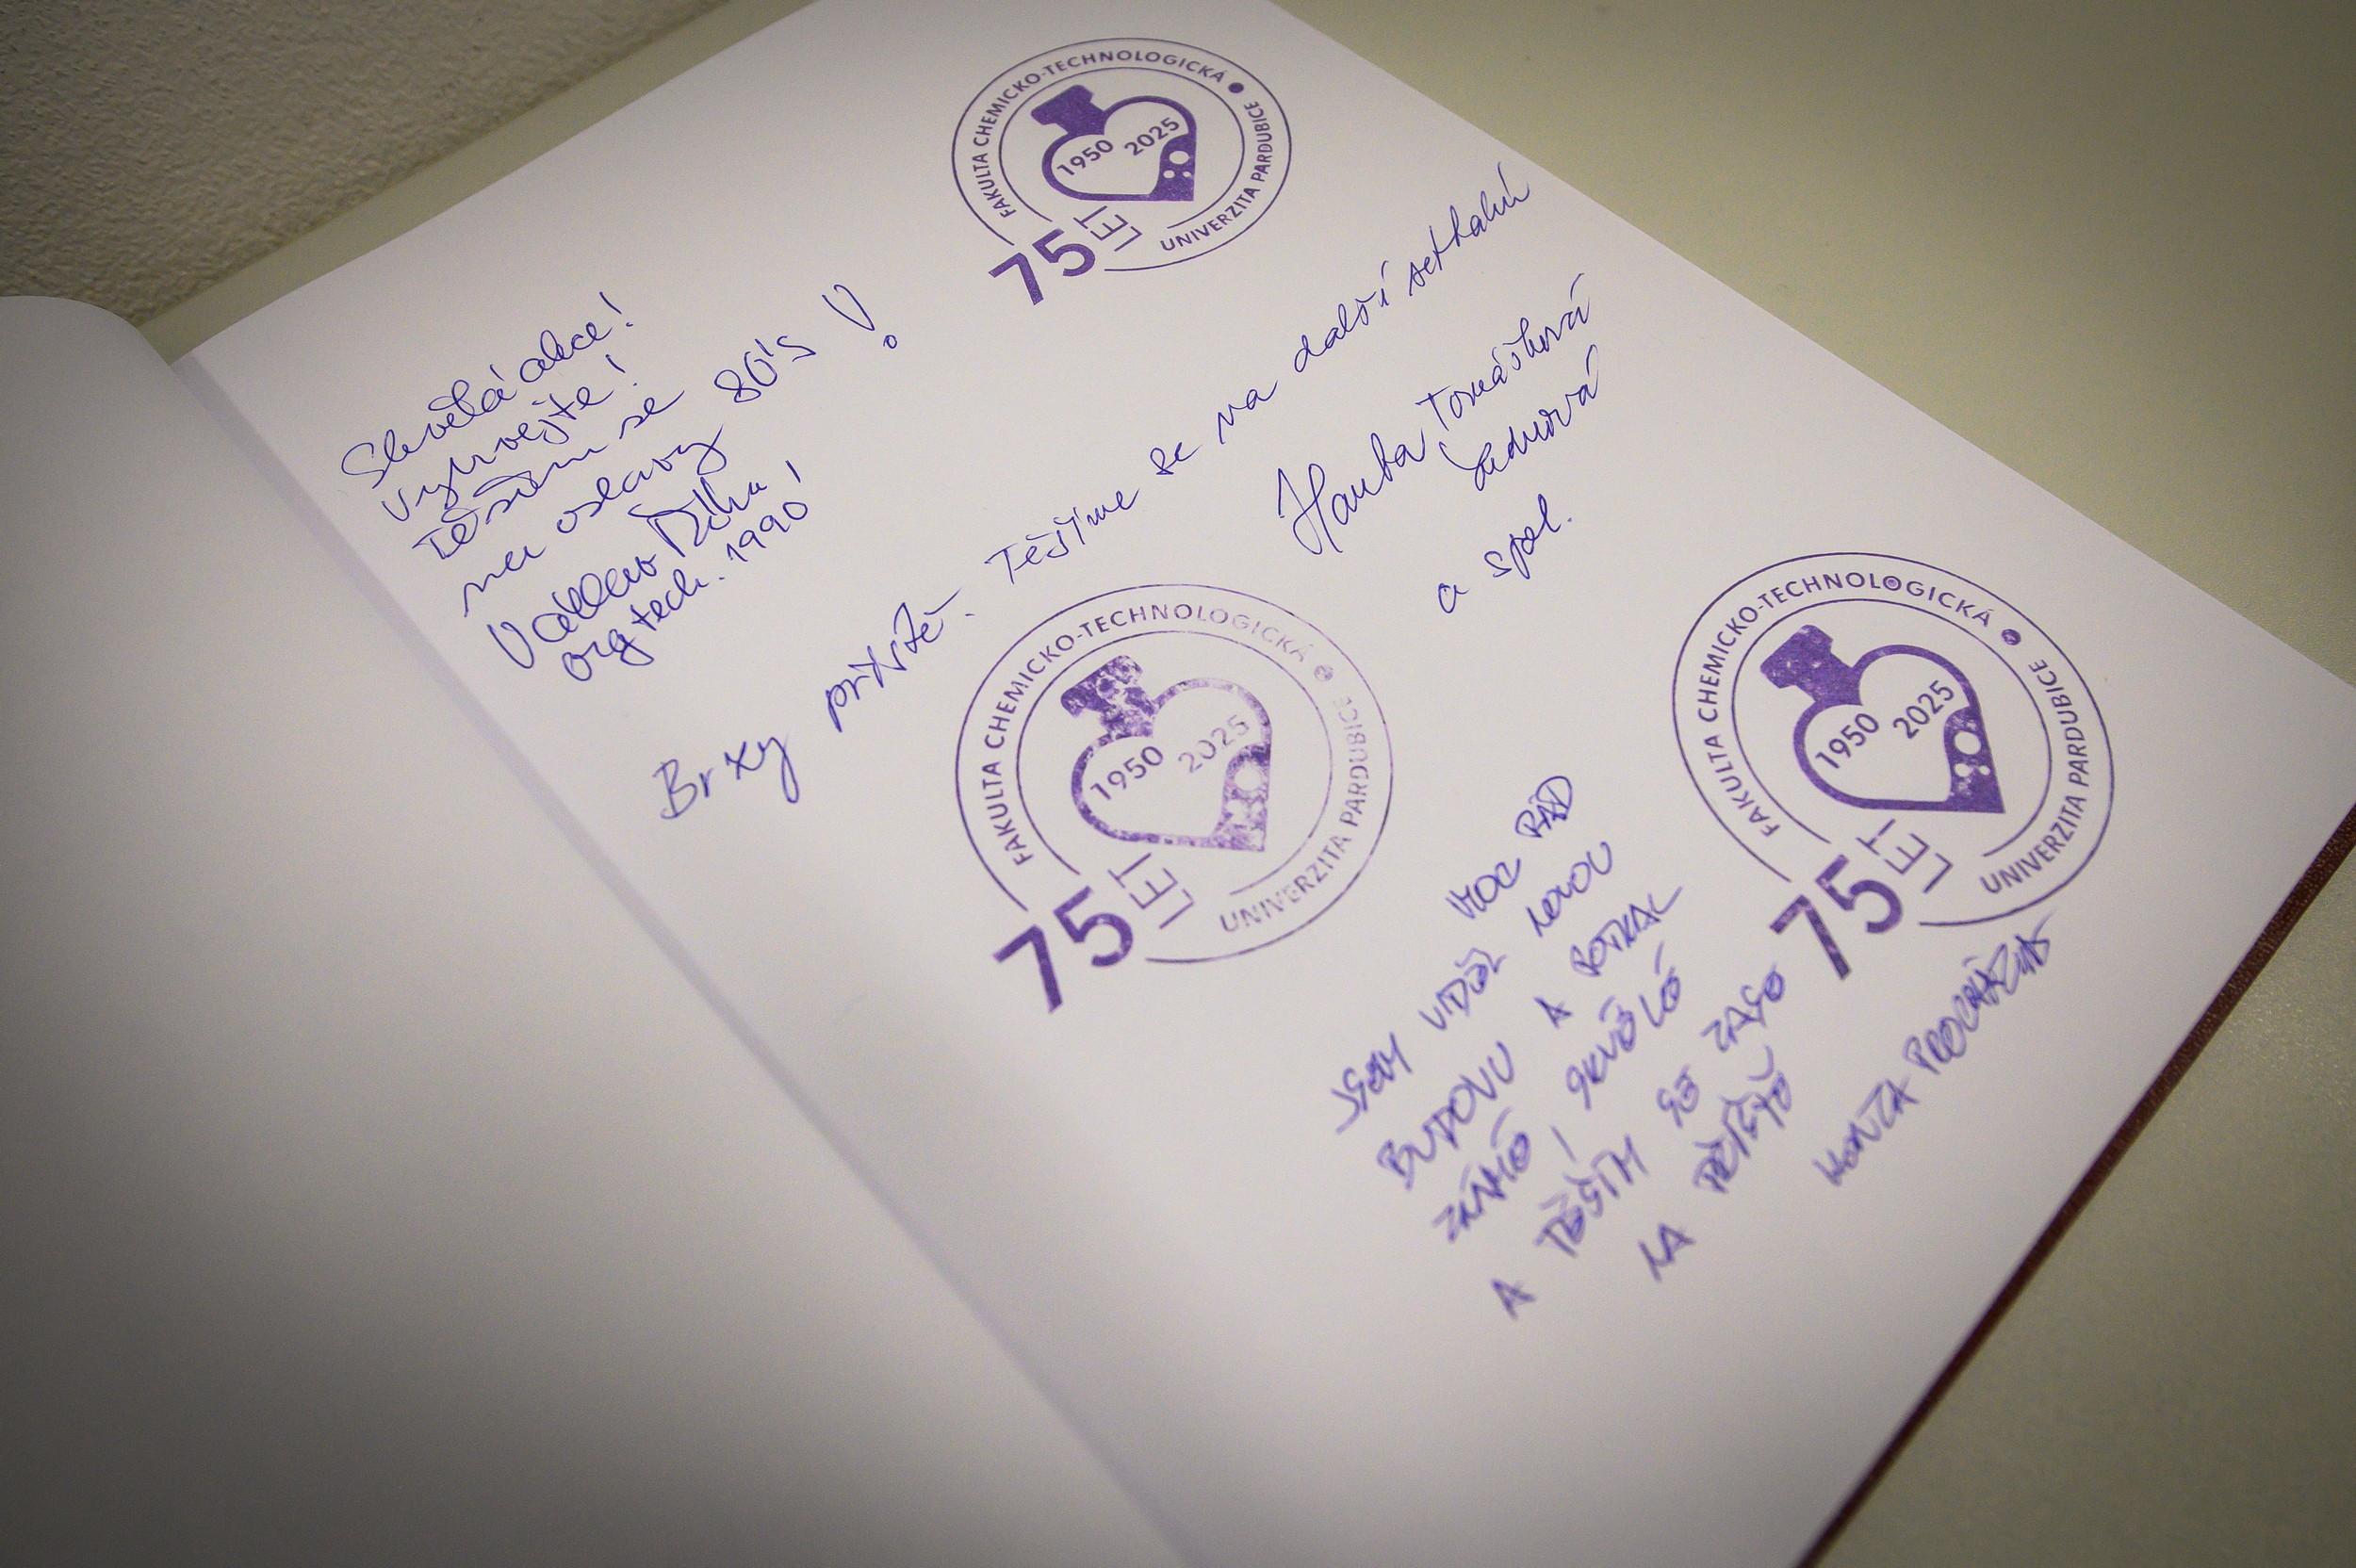 FAKULTA CHEMICKO-TECHNOLOGICKÁ
UNIVERZITA PARDUBICE
1950 2025
75 LET
Skvělá akce!
Vytrvejte!
Těším se
na oslavy 80's!
Václav Říha
org tech. 1990!
Brzy příště. Těšíme se na další setkání
Hanka Tomášková
a spol.
FAKULTA CHEMICKO-TECHNOLOGICKÁ
UNIVERZITA PARDUBICE
1950 2025
75 LET
FAKULTA CHEMICKO-TECHNOLOGICKÁ
UNIVERZITA PARDUBICE
1950 2025
75 LET
JSEM VIDĚL NOVOU
BUDOVU A POTKAL
ZNÁMÉ! SKVĚLÉ
A TĚŠÍM SE ZASE
NA PŘÍŠTĚ
HONZA PROCHÁZKA